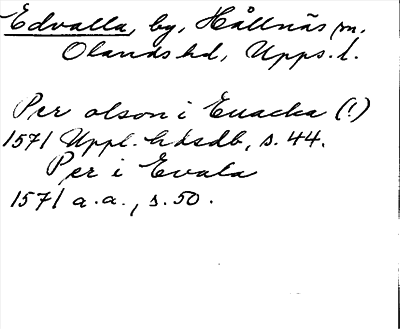 Edvalla, by, Hållnäs sn.
Olands hd, Upps. l.
Per olson i Euacka (!)
1571 Uppl. hdsdb, s. 44.
Per i Evala
1571 a. a., s. 50.